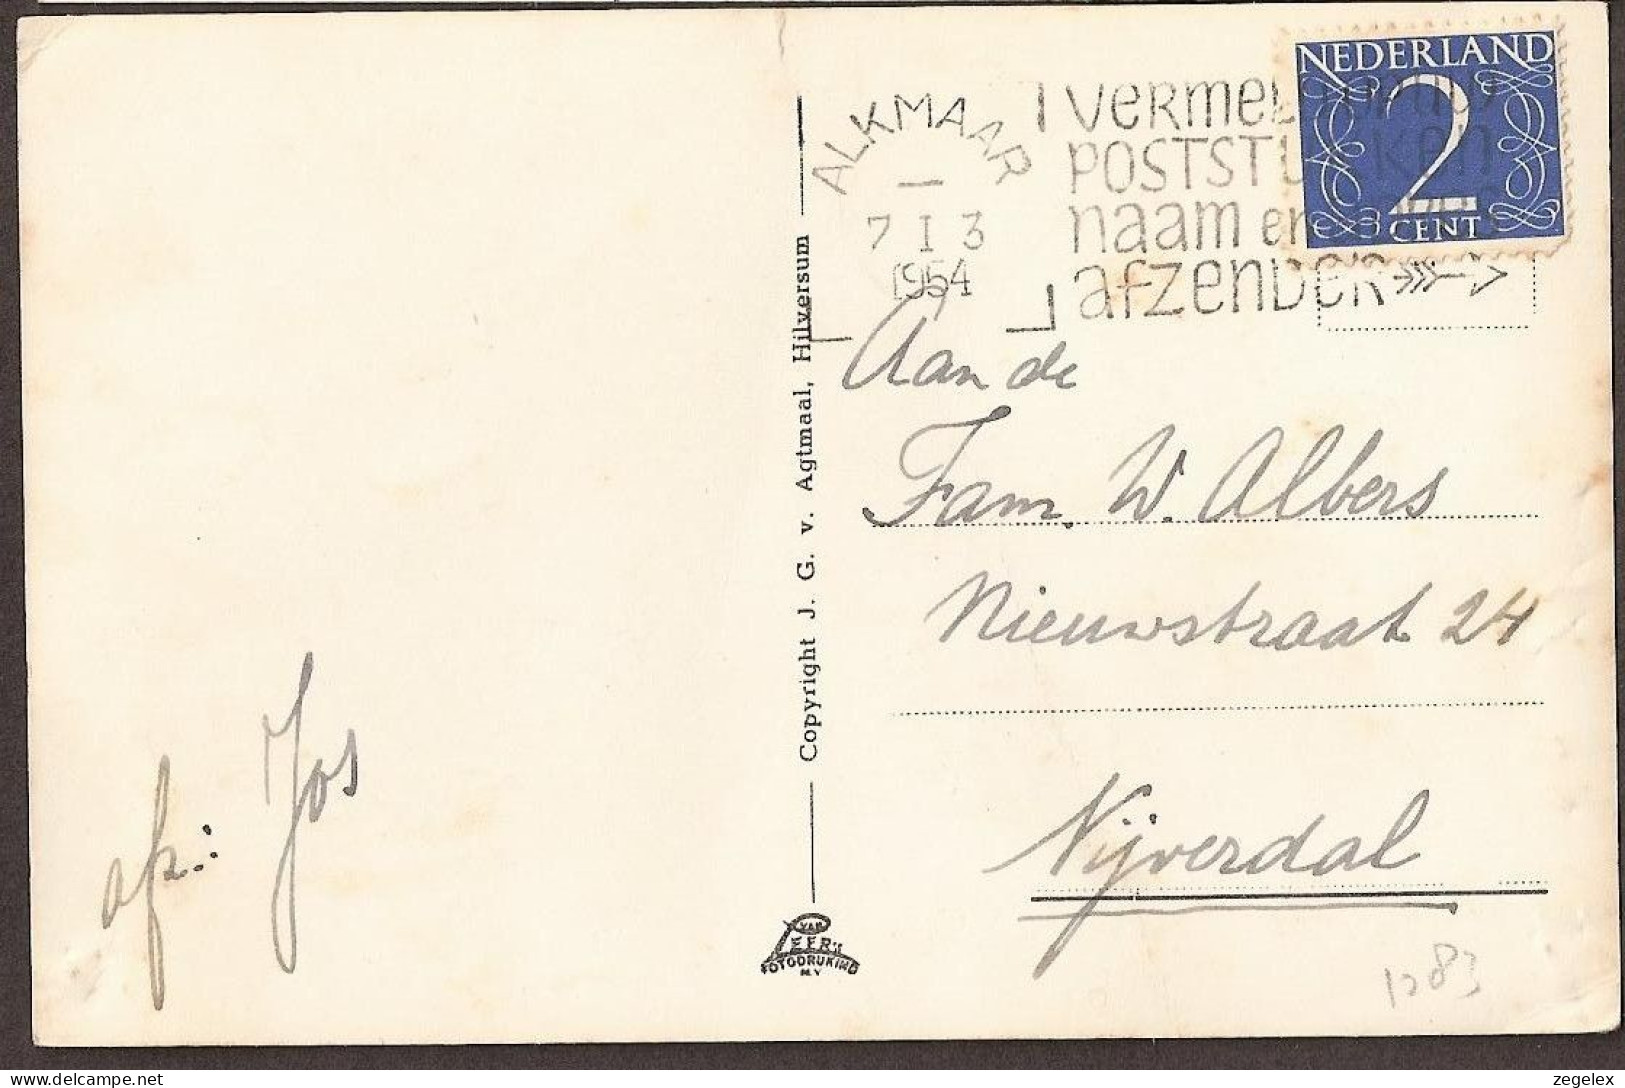 NEDERLAND
2
CENT
ALKMAAR
7 I 3
1954
VERMELD
POSTSTUKKEN
naam en
afzender
Aan de
Fam. W. Albers
Nieuwstraat 24
Nijverdal
afz.: Jos
Copyright J. G. v. Agtmaal, Hilversum
VAN
LEER'S
FOTODRUKIND
N.V
1283
zegelex